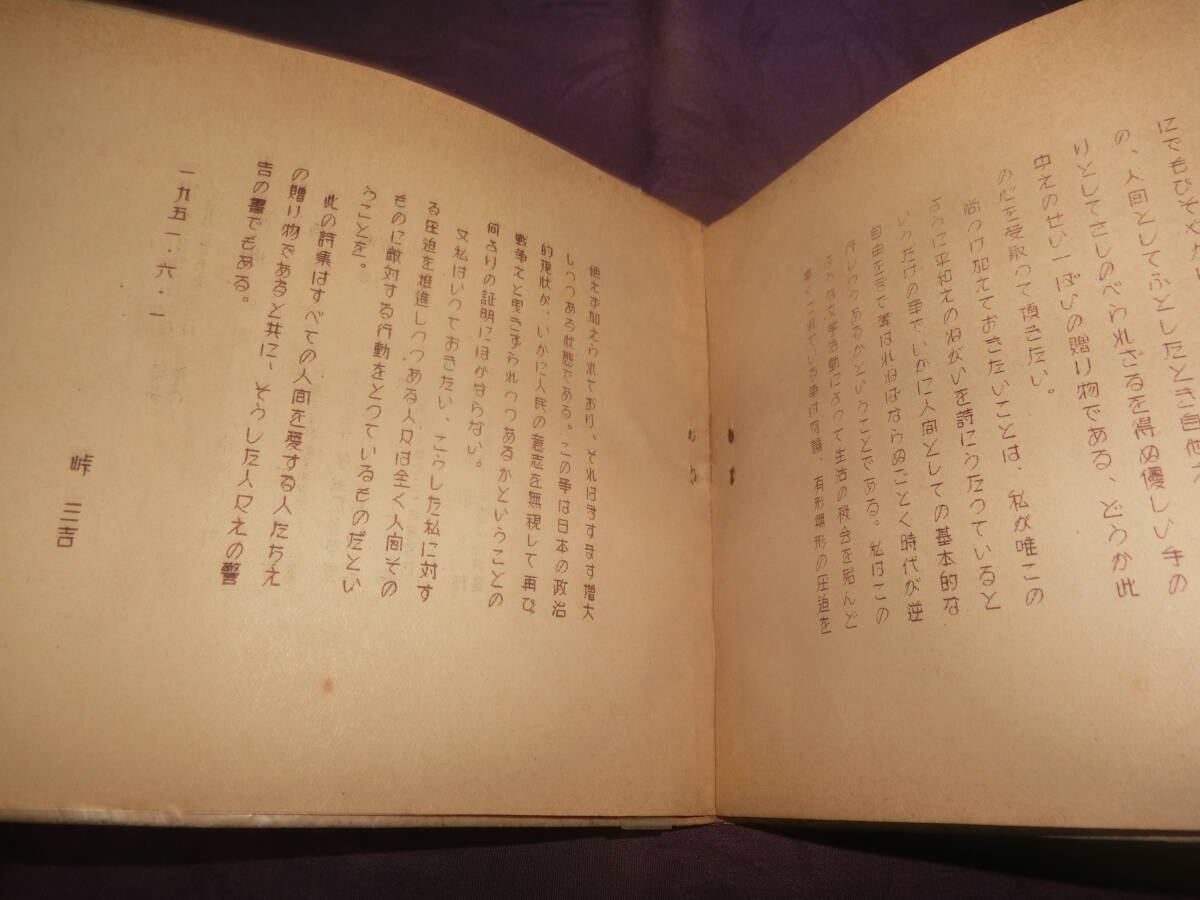 の、人间としてふとしたとき自他
りとしてさしのべられざるを得ぬ優しい手の
中えのせい一ぱいの贈り物である、どうか此
の心を受取って頂きたい。
尚つけ加えておきたいことは、私が唯この
ように平和えのねがいを詩にうたっていると
いうだけの事で、いかに人间としての基本的な
自由を奪はれねばならぬごとく時代が逆
行しつつあるかということである。私はこの
ような文学活動によって生活の機会を殆んど
無くされている事は勿論、有形無形の圧迫を
絶えず加えられており、それはますます増大
しつつある状態である。この事は日本の政治
的現状が、いかに人民の意志を無視して再び
戦争えと曳きずられつつあるかということの
何よりの証明にほかならない。
又私はいっておきたい、こうした私に対す
る圧迫を推進しつつある人々は全く人间その
ものに敵対する行動をとっているものだとい
うことを。
此の詩集はすべての人间を愛する人たちえ
の贈り物であると共に、そうした人々えの警
告の書でもある。
一九五一・六・一
峠 三吉